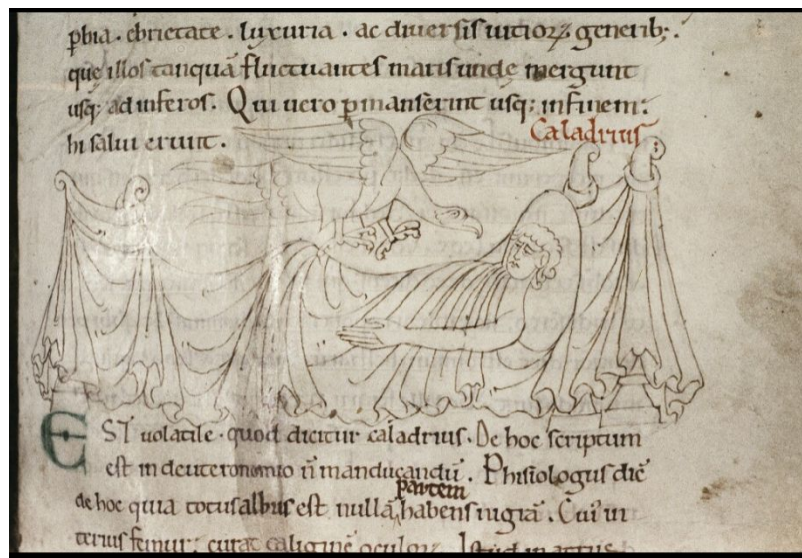 ꝑbia · ebrietate · luxuria · ac diuersis uitioꝝ generib; ·
que illos tanquā fluctuantes maris unde mergunt
usq; ad inferos. Qui uero ꝑmanserint usq; in finem:
hi salui erunt ·
Caladrius
EST uolatile · quod dicitur caladrius. De hoc scriptum
est in deuteronomio ñ manducandū. Phisiologus diċ
partem
de hoc quia totus albus est nullā habens nigrā. Cui᾽ in
terius femur; curat caliginē oculoꝝ. Istud in